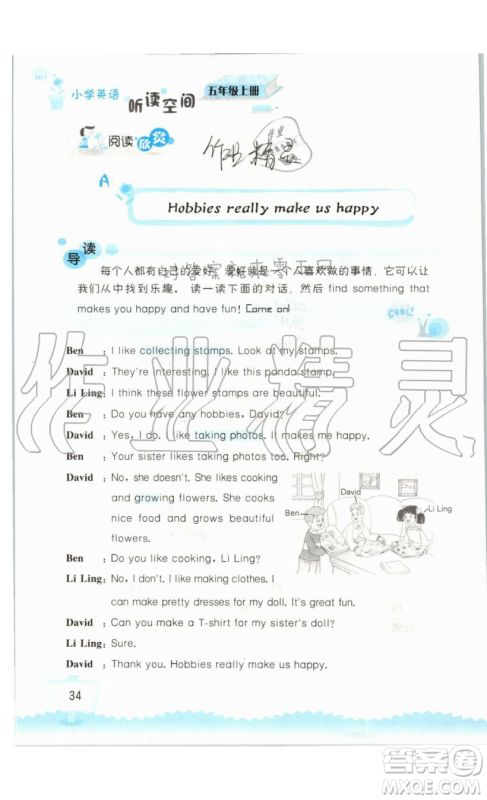 小学英语
听读空间
五年级上册
阅读欣赏
作业精灵
A
Hobbies really make us happy
导读
对答案就来零五网
每个人都有自己的爱好。爱好就是一个人喜欢做的事情，它可以让
我们从中找到乐趣。读一读下面的对话，然后 find something that
makes you happy and have fun! Come on!
COOL!
Ben : I like collecting stamps. Look at my stamps.
David : They're interesting. I like this panda stamp.
Li Ling: I think these flower stamps are beautiful.
Ben : Do you have any hobbies, David?
David : Yes, I do. I like taking photos. It makes me happy.
Ben : Your sister likes taking photos too. Right?
David : No, she doesn't. She likes cooking
and growing flowers. She cooks
nice food and grows beautiful
flowers.
Ben
David
Li Ling
Ben : Do you like cooking, Li Ling?
Li Ling: No, I don't. I like making clothes. I
can make pretty dresses for my doll. It's great fun.
David : Can you make a T-shirt for my sister's doll?
Li Ling: Sure.
David : Thank you. Hobbies really make us happy.
34
作业精灵
答案圈
MXQE.COM